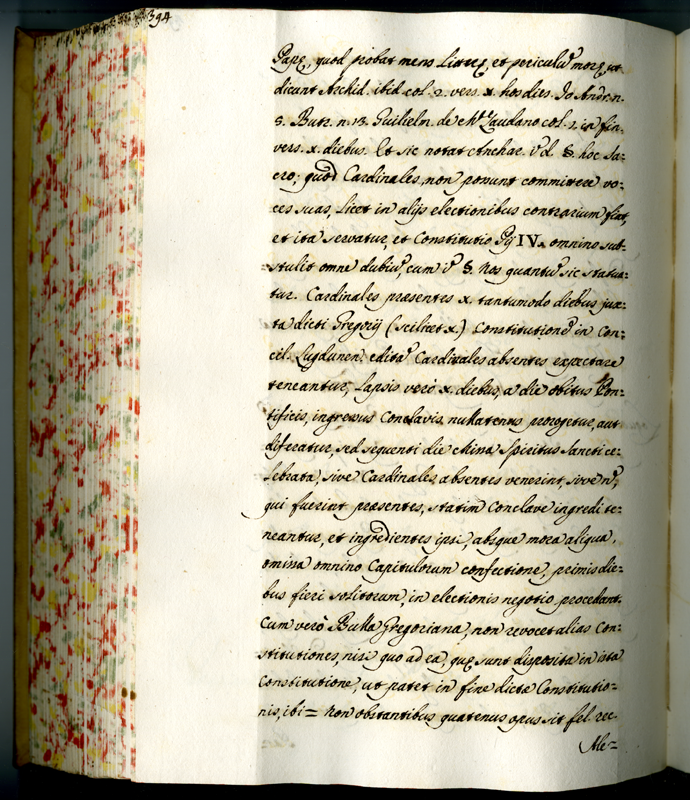 394
Papę, quod probat mens Littrę, et periculũ morę, ut
dicunt Archid. ibid. col. 2. vers. x. hos dies. Jo. Andr. n.
5. Butr. n. 13. Guilielm. de Mte Laudano col. 2. in fin.
vers. x. diebus. Et sic notat Anchar. i᷃d. §. hoc Sa:
cro; quod Cardinales, non possunt committere vo:
ces suas, licet in alijs electionibus contrarium fiat,
et ita servatur, et Constitutio Pij IV. omnino sub:
stulit omne dubiũ, cum i᷃ §. Nos quantũ sic statua:
tur. Cardinales præsentes x. tantumodo diebus jux:
ta dicti Gregorij (scilicet x.) Constitutionẽ in Con:
cil. Lugdunen. editã Cardinales absentes expectare
teneantur, Lapsis verò x. diebus, a die obitus Pon:
tificis, ingressus Conclavis, nullatenus prorogetur, aut
diferatur, sed sequenti die Missa Spiritus Sancti ce:
lebrata, sive Cardinales absentes venerint, sive nõ,
qui fuerint præsentes, statim Conclave ingredi te:
neantur, et ingredientes ipsi, absque mora aliqua,
omissa omnino Capitulorum confectione, primis die:
bus fieri solitorum, in electionis negotio procedant.
Cum verò Bulla Gregoriana, non revocet alias Con:
stitutiones, nisi quo ad ea, quę sunt disposita in ista
Constitutione, ut patet in fine dictæ Constitutio:
nis, ibi = Non obstantibus quatenus opus sit fel. rec.
Ale: